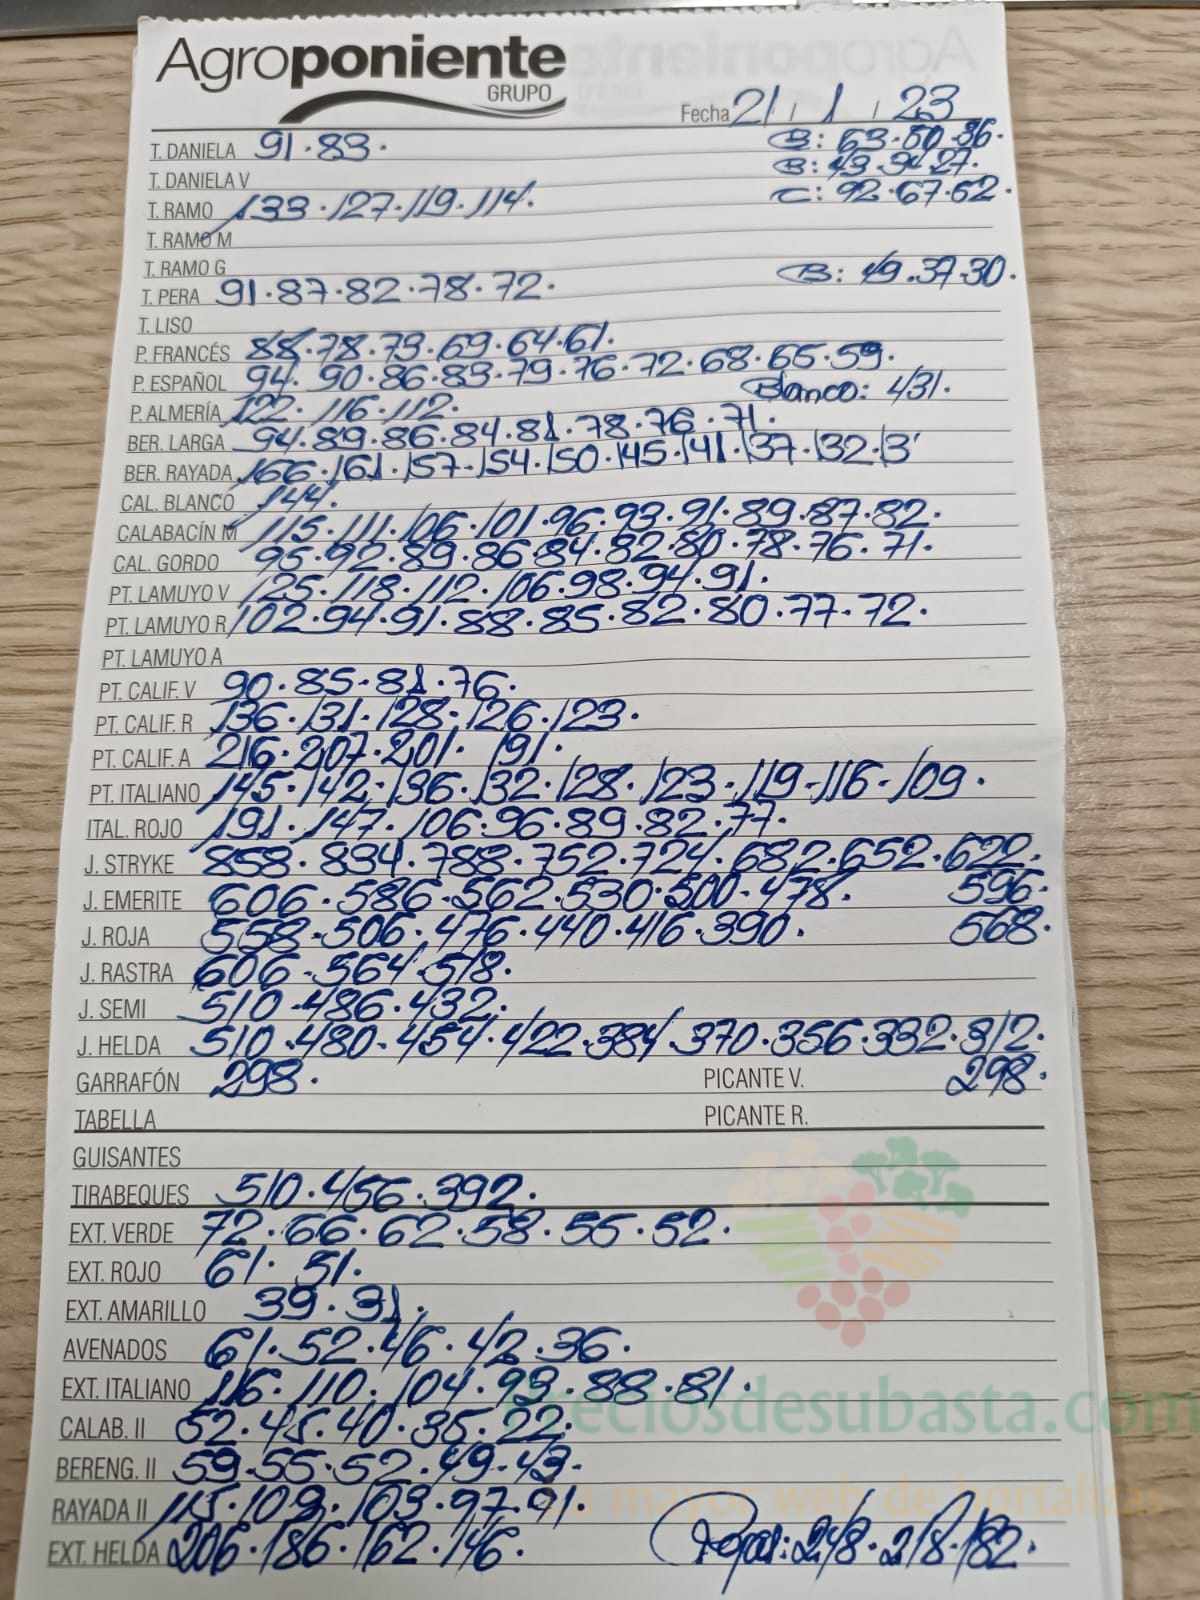 Agroponiente
GRUPO
Fecha 21 / 1 / 23
T. DANIELA 91.83. B: 63.50.36.
T. DANIELA V B: 43.34.27.
T. RAMO 133.127.119.114. C: 92.67.62.
T. RAMO M
T. RAMO G
T. PERA 91.87.82.78.72. B: 49.37.30.
T. LISO
P. FRANCÉS 88.78.73.69.64.61.
P. ESPAÑOL 94.90.86.83.79.76.72.68.65.59.
P. ALMERÍA 122.116.112. Blanco: 431.
BER. LARGA 94.89.86.84.81.78.76.71.
BER. RAYADA 166.161.157.154.150.145.141.137.132.13
CAL. BLANCO 144.
CALABACÍN M 115.111.106.101.96.93.91.89.87.82.
CAL. GORDO 95.92.89.86.84.82.80.78.76.71.
PT. LAMUYO V 125.118.112.106.98.94.91.
PT. LAMUYO R 102.94.91.88.85.82.80.77.72.
PT. LAMUYO A
PT. CALIF. V 90.85.81.76.
PT. CALIF. R 136.131.128.126.123.
PT. CALIF. A 216.207.201.191.
PT. ITALIANO 145.142.136.132.128.123.119.116.109.
ITAL. ROJO 191.147.106.96.89.82.77.
J. STRYKE 858.834.788.752.724.682.652.622.
J. EMERITE 606.586.562.530.500.478. 596.
J. ROJA 558.506.476.440.416.390. 568.
J. RASTRA 606.564.518.
J. SEMI 510.486.432.
J. HELDA 510.480.454.422.384.370.356.332.312.
GARRAFÓN 298. PICANTE V. 298.
TABELLA PICANTE R.
GUISANTES
TIRABEQUES 510.456.392.
EXT. VERDE 72.66.62.58.55.52.
EXT. ROJO 61.51.
EXT. AMARILLO 39.31.
AVENADOS 61.52.46.42.36.
EXT. ITALIANO 116.110.104.93.88.81.
Preciosdesubasta.com
CALAB. II 52.45.40.35.22.
BERENG. II 59.55.52.49.43.
RAYADA II 115.109.103.97.91.
La mayor web de hortalizas
EXT. HELDA 206.186.162.146. Rojas: 248.218.182.